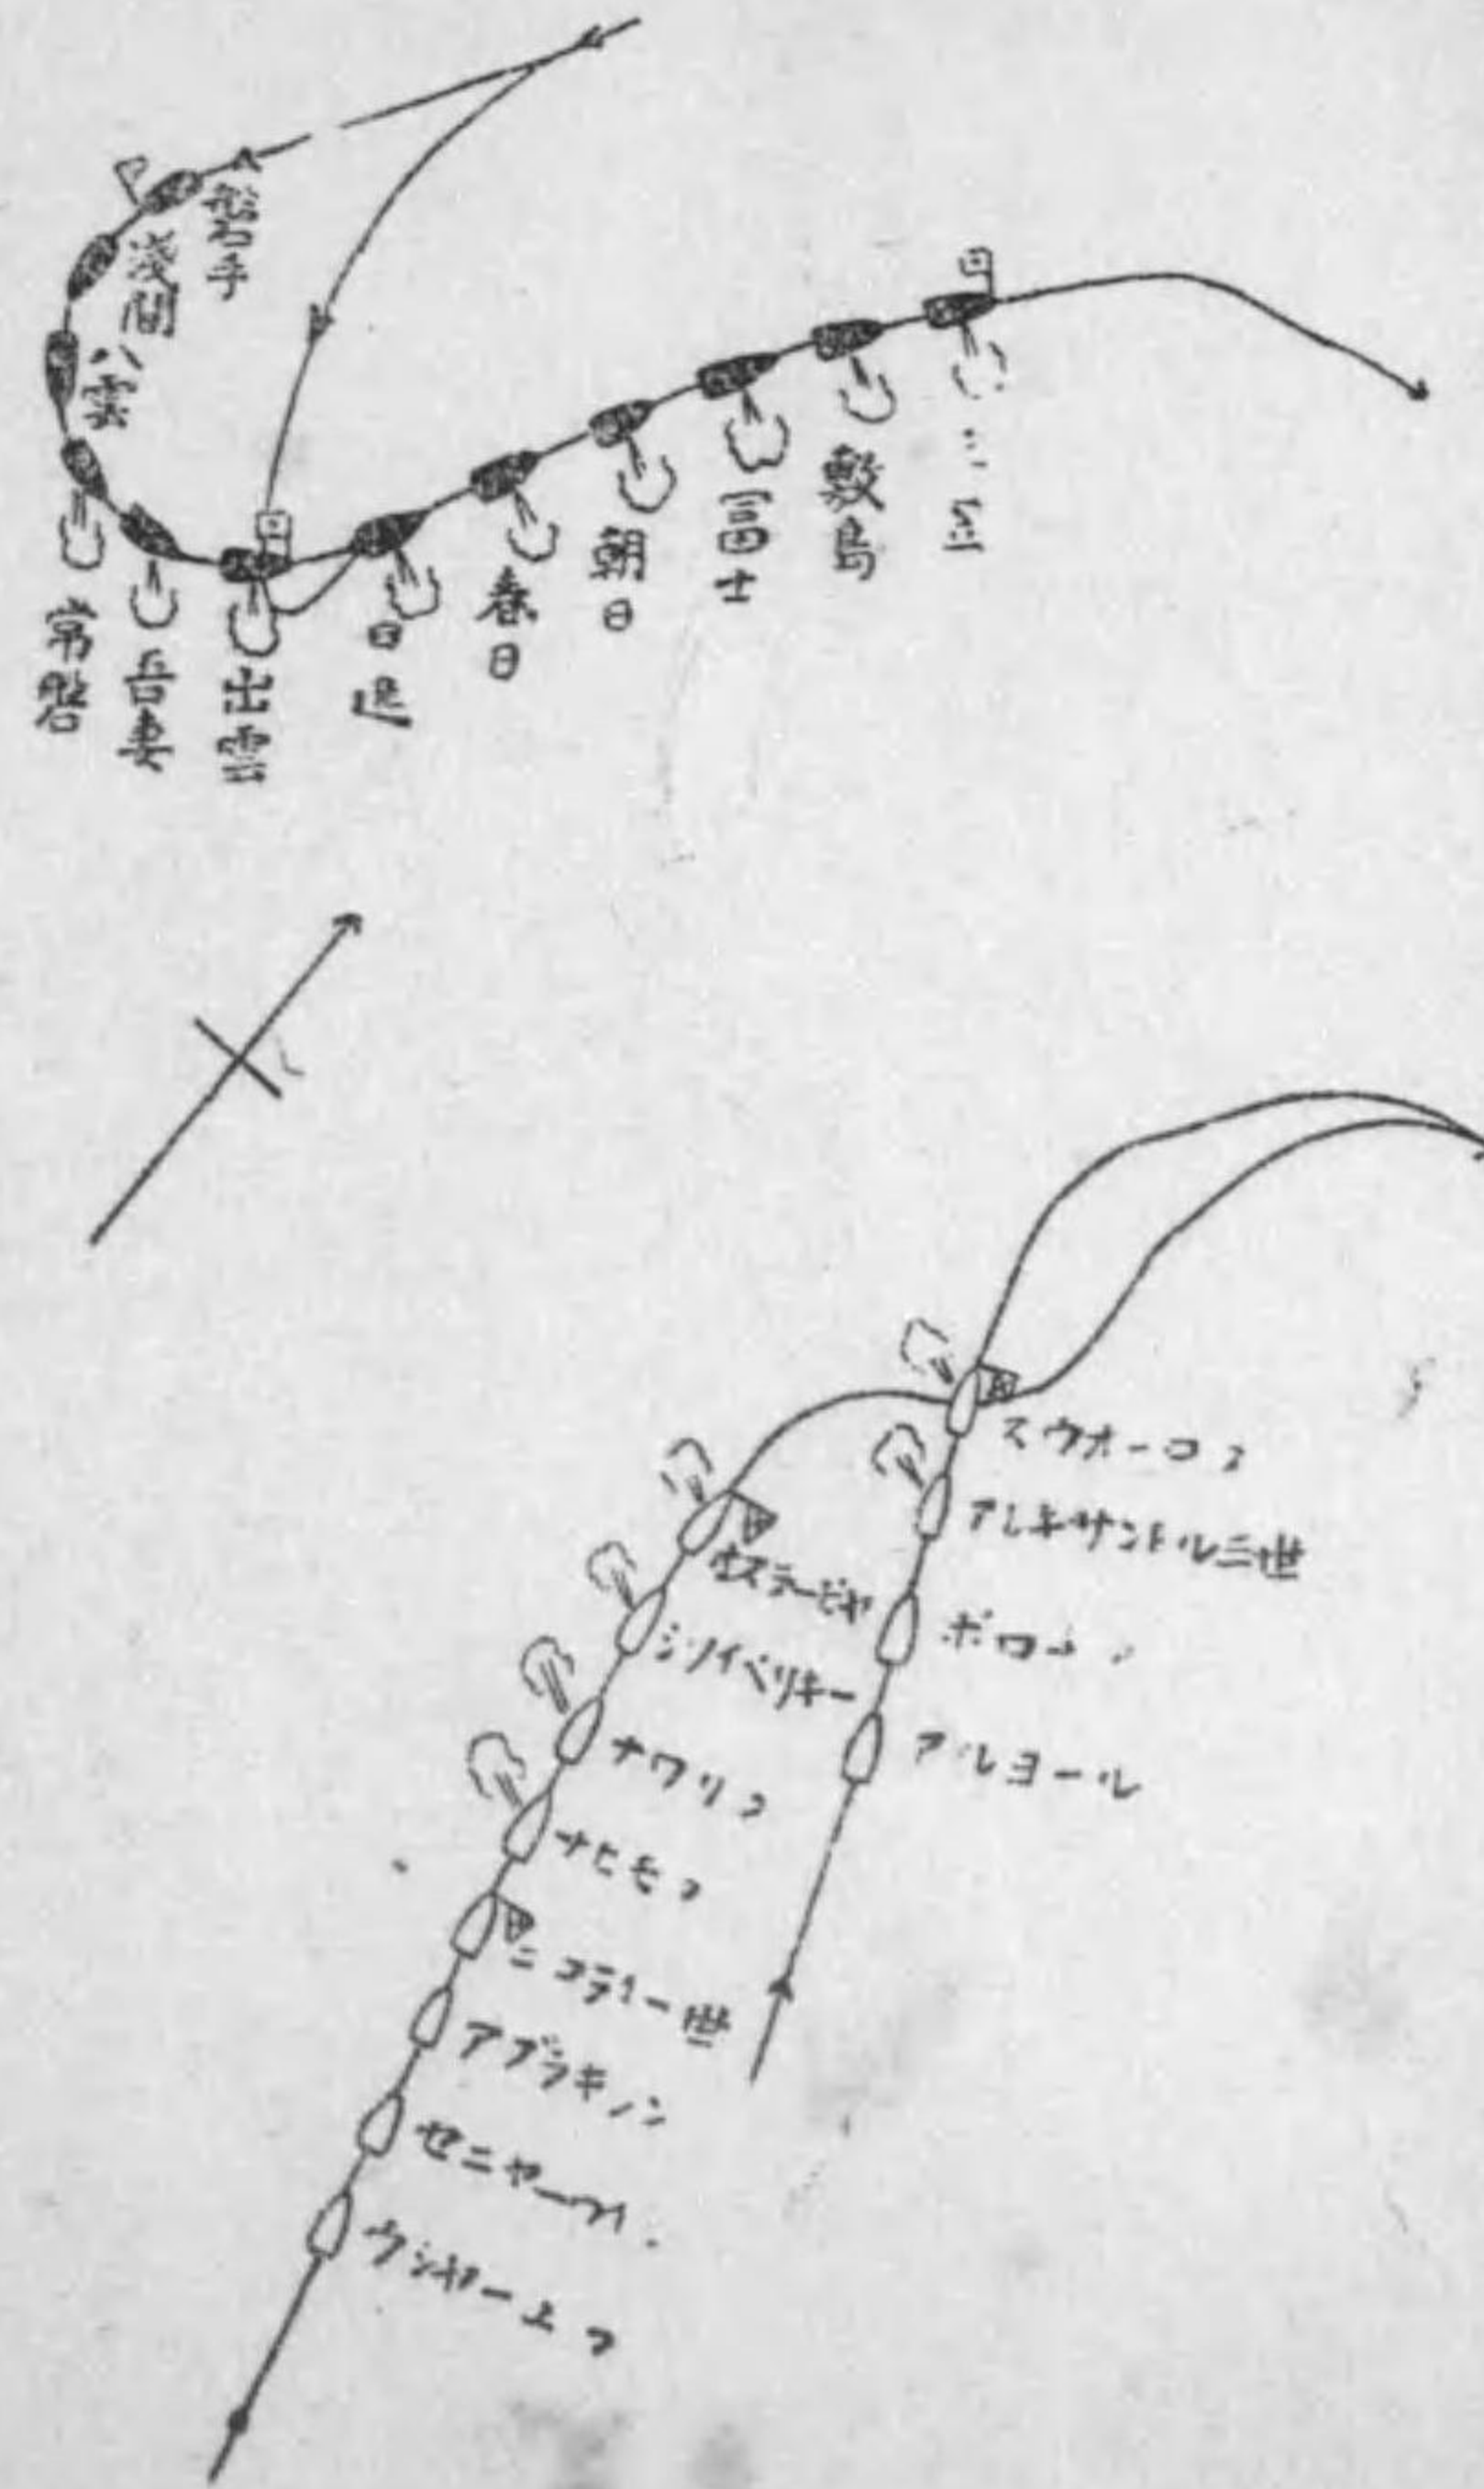 磐手
淺間
八雲
常磐
吾妻
出雲
日進
春日
朝日
富士
敷島
三笠
スウオーロフ
アレキサンドル三世
ボロヂノ
アルヨール
ヲスラービヤ
シソイベリキー
ナワリン
ナヒモフ
ニコライ一世
アブラキシン
セニヤーウイン
ウシヤーコフ